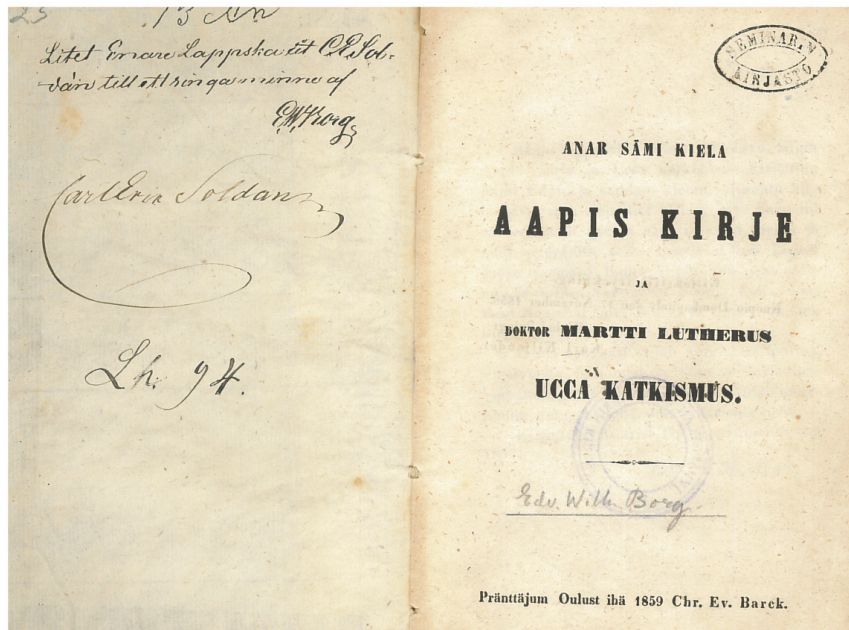 23
13
Litet Enare Lappska åt C. E. Sol-
dán till ett ringa minne af
E.W. Borg
Carl Eric Soldan
Lh. 94.
SEMINARIN
KIRJASTO
ANAR SÄMI KIELA
AAPIS KIRJE
JA
DOKTOR MARTTI LUTHERUS
UCCA KATKISMUS.
Edv. Wilh. Borg.
Pränttäjum Oulust ihä 1859 Chr. Ev. Barck.